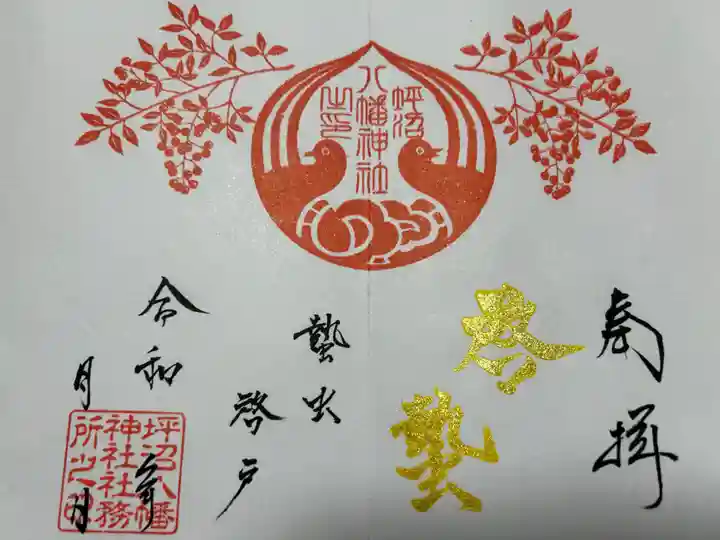 坪沼
八幡神社
之印
奉拝
啓
蟄
蟄虫
啓戸
令和
年
月
月
坪沼八幡
神社社務
所之印